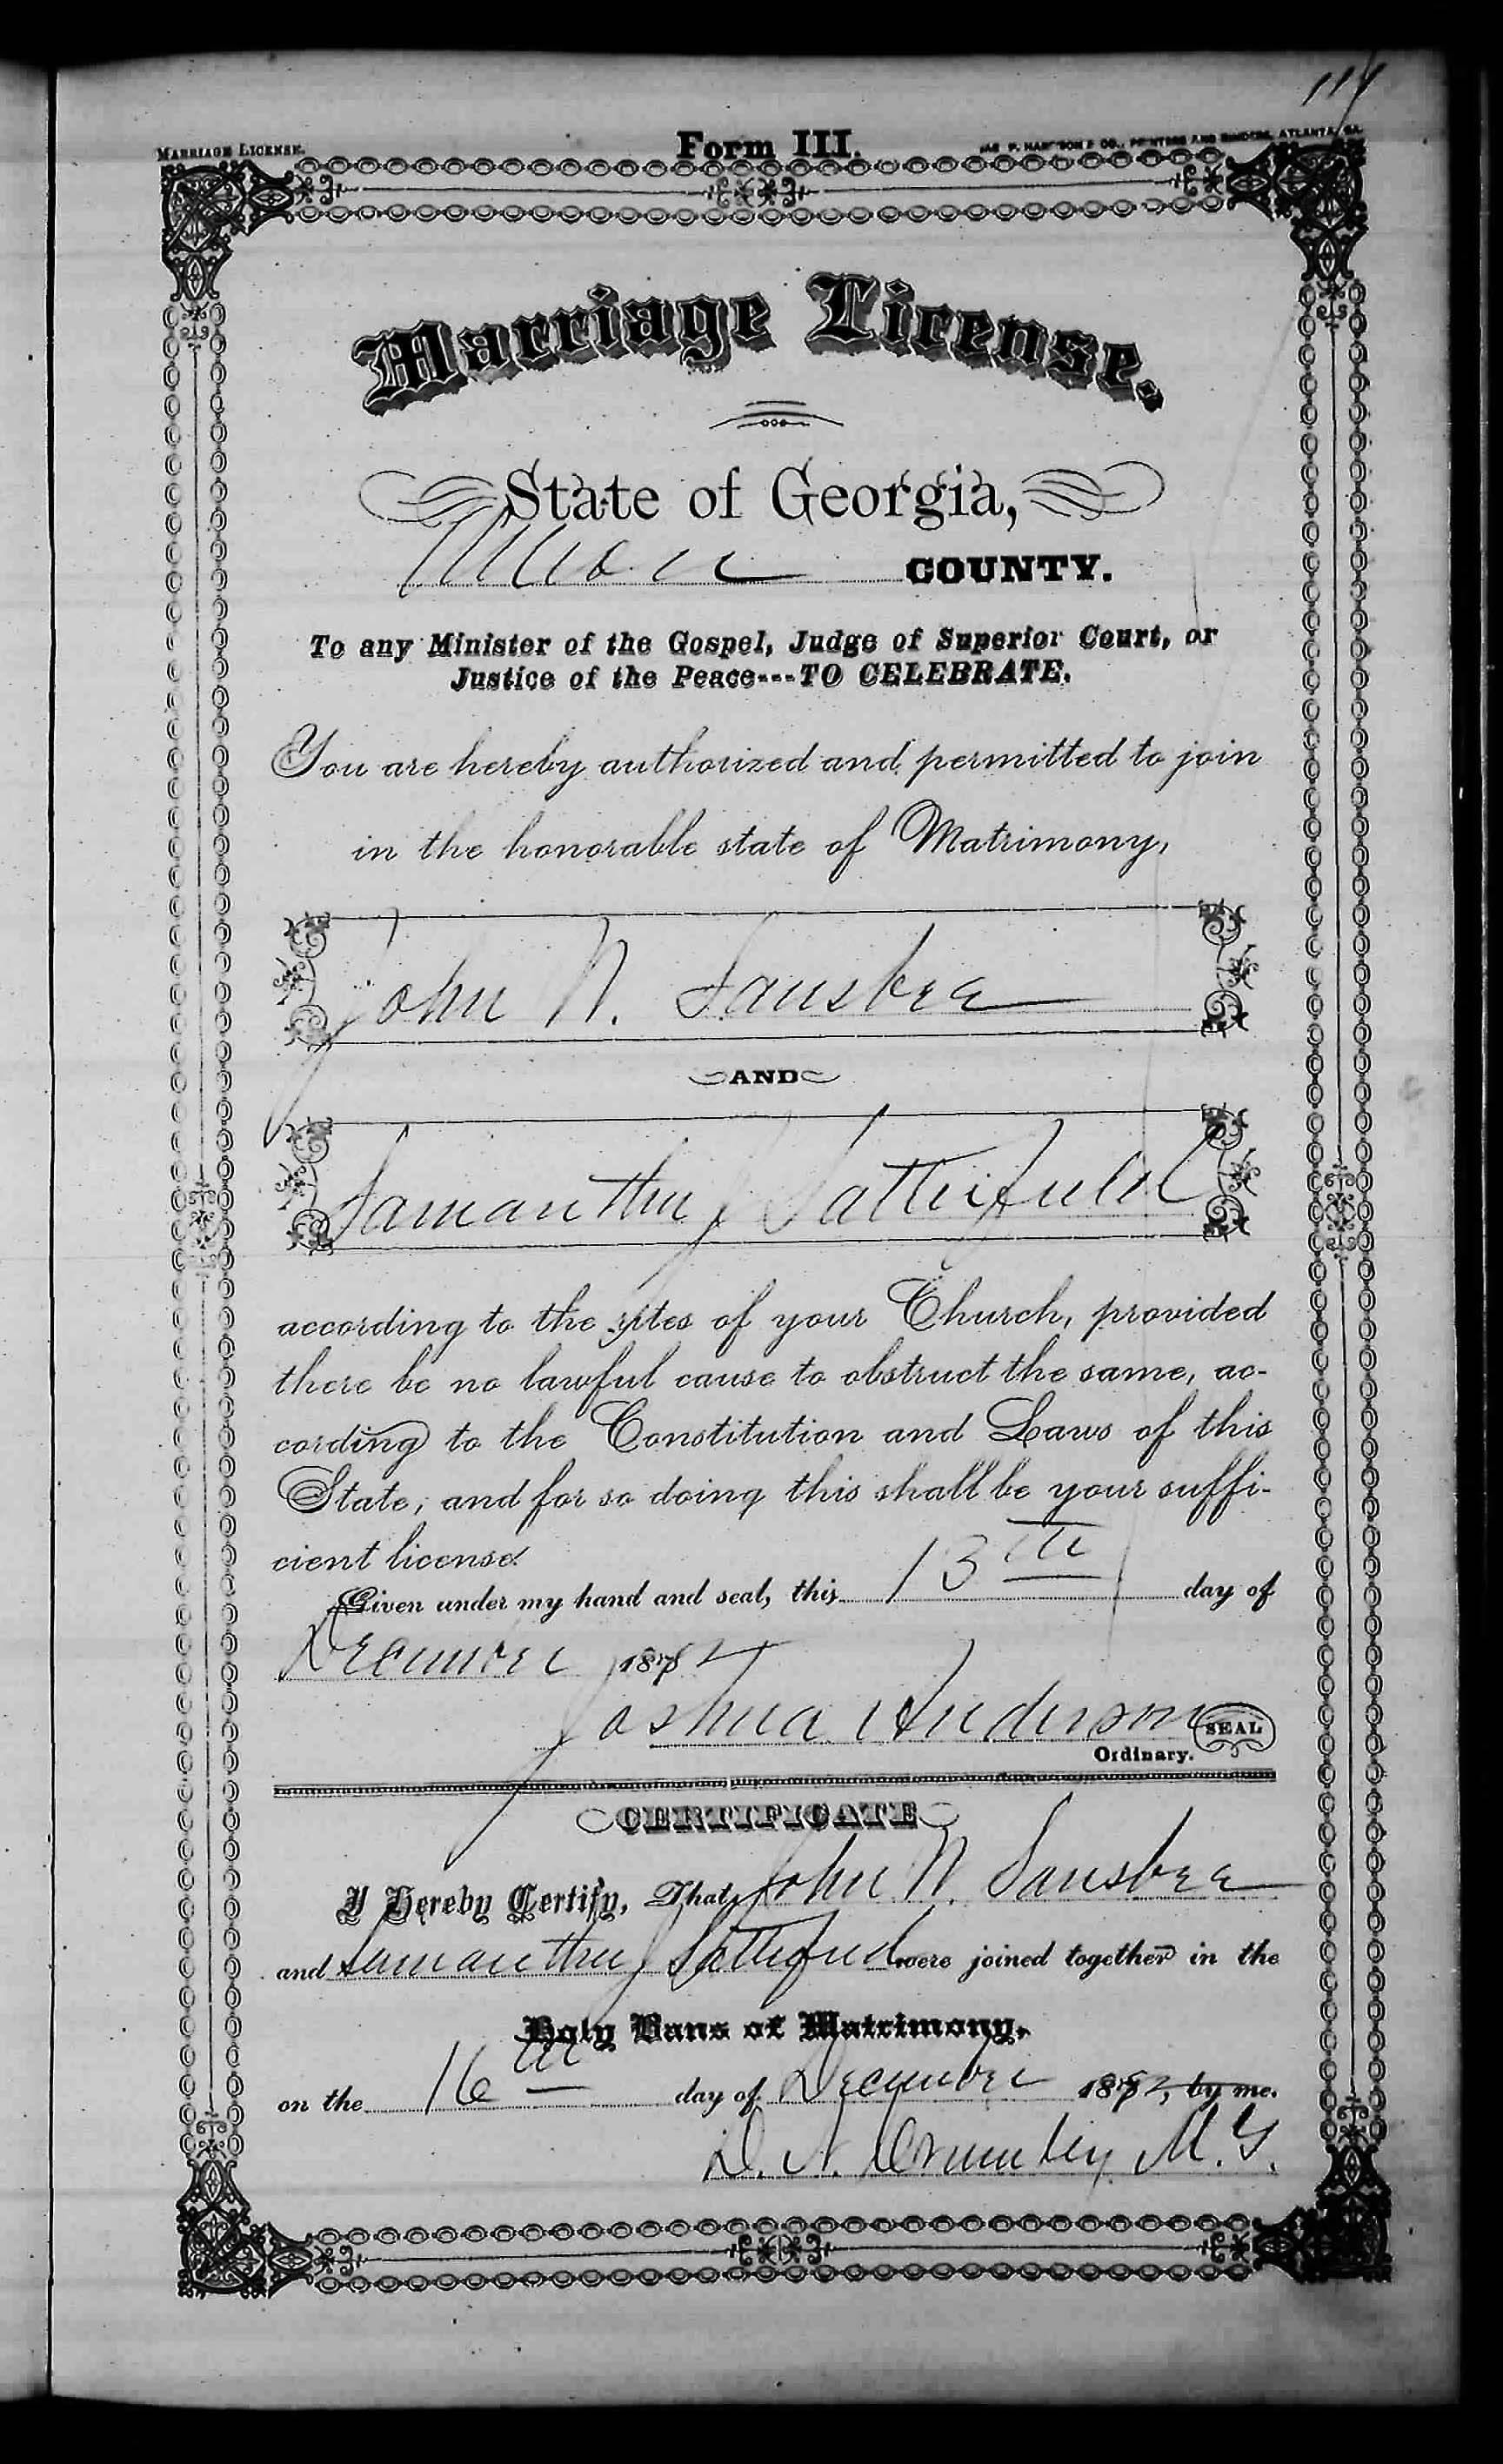 114
MARRIAGE LICENSE.
Form III.
JAS. P. HARRISON & CO., PRINTERS AND BINDERS, ATLANTA, GA.
Marriage License.
State of Georgia,
Union COUNTY.
To any Minister of the Gospel, Judge of Superior Court, or
Justice of the Peace---TO CELEBRATE.
You are hereby authorized and permitted to join
in the honorable state of Matrimony,
John N. Sansbee
AND
Samantha J Satterfield
according to the rites of your Church, provided
there be no lawful cause to obstruct the same, ac-
cording to the Constitution and Laws of this
State; and for so doing this shall be your suffi-
cient license.
Given under my hand and seal, this 13th day of
December 1882
Joshua Anderson SEAL
Ordinary.
CERTIFICATE
I Hereby Certify, That John N. Sansbee
and Samantha J were joined together in the
Holy Bans of Matrimony,
on the 16th day of December 1882, by me.
D. N. M. G.